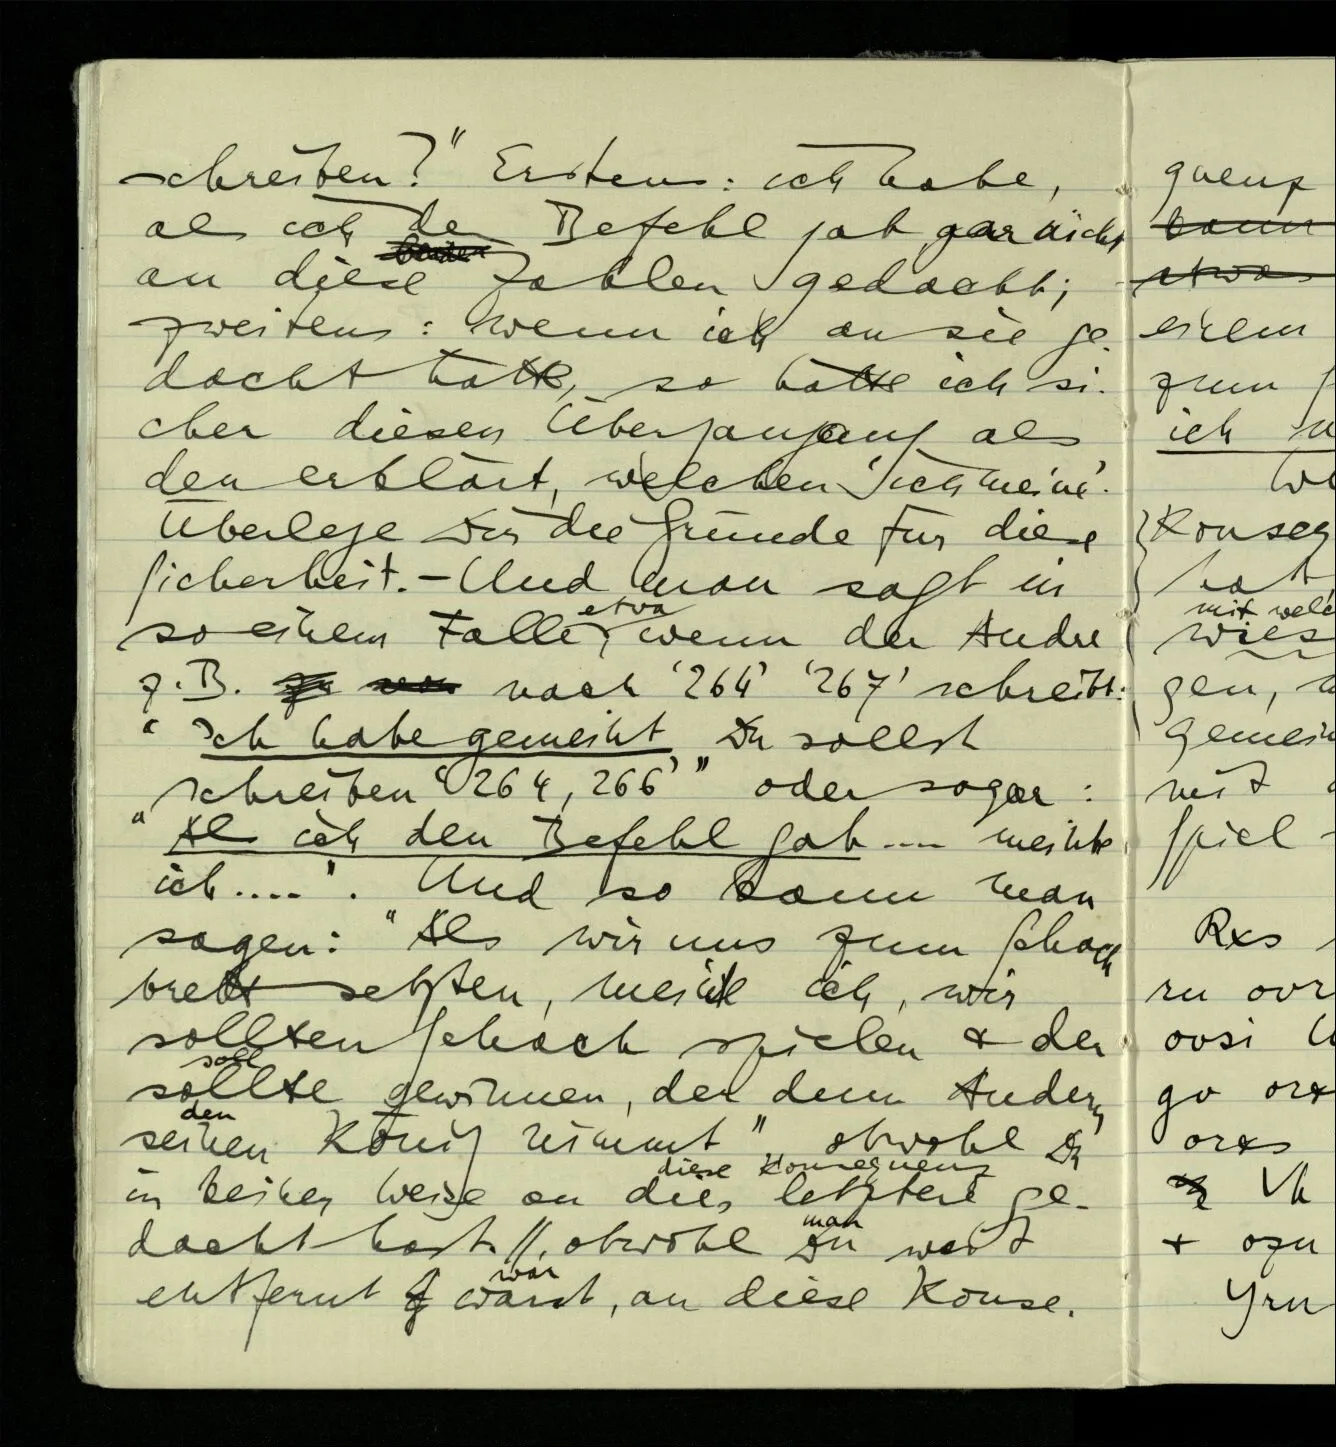 schreiben?" Erstens: ich habe,
als ich den Befehl gab gar nicht
an diese Zahlen gedacht;
zweitens: wenn ich an sie ge-
dacht hätte, so hätte ich si-
cher diesen Übergang als
den erklärt, welchen 'ich meine'.
Überlege Dir die Gründe für diese
Sicherheit. – Und man sagt in
etwa
so einem Falle, wenn der Andre
z.B. nach '264' '267' schreibt:
"Ich habe gemeint Du sollst
schreiben '264, 266'" oder sogar:
"Als ich den Befehl gab .... meinte
ich ....". Und so kann man
sagen: "Als wir uns zum Schach
brett setzten, meinte ich, wir
sollten Schach spielen & der
soll
sollte gewinnen, der dem Andern
den
seinen König nimmt" obwohl Du
diese Konsequenz
in keiner Weise an dies letztere ge-
man
dacht hast. //, obwohl Du weit
war
entfernt warst, an diese Konse-
quenz
kann
etwas
einem
zum
ich
Konseq
hat
mit welc
wies
gen,
gemein
mit
Spiel
Rxs
ru ovr
ovsi
go orx
orxs
Vh
+ ozu
Yrn